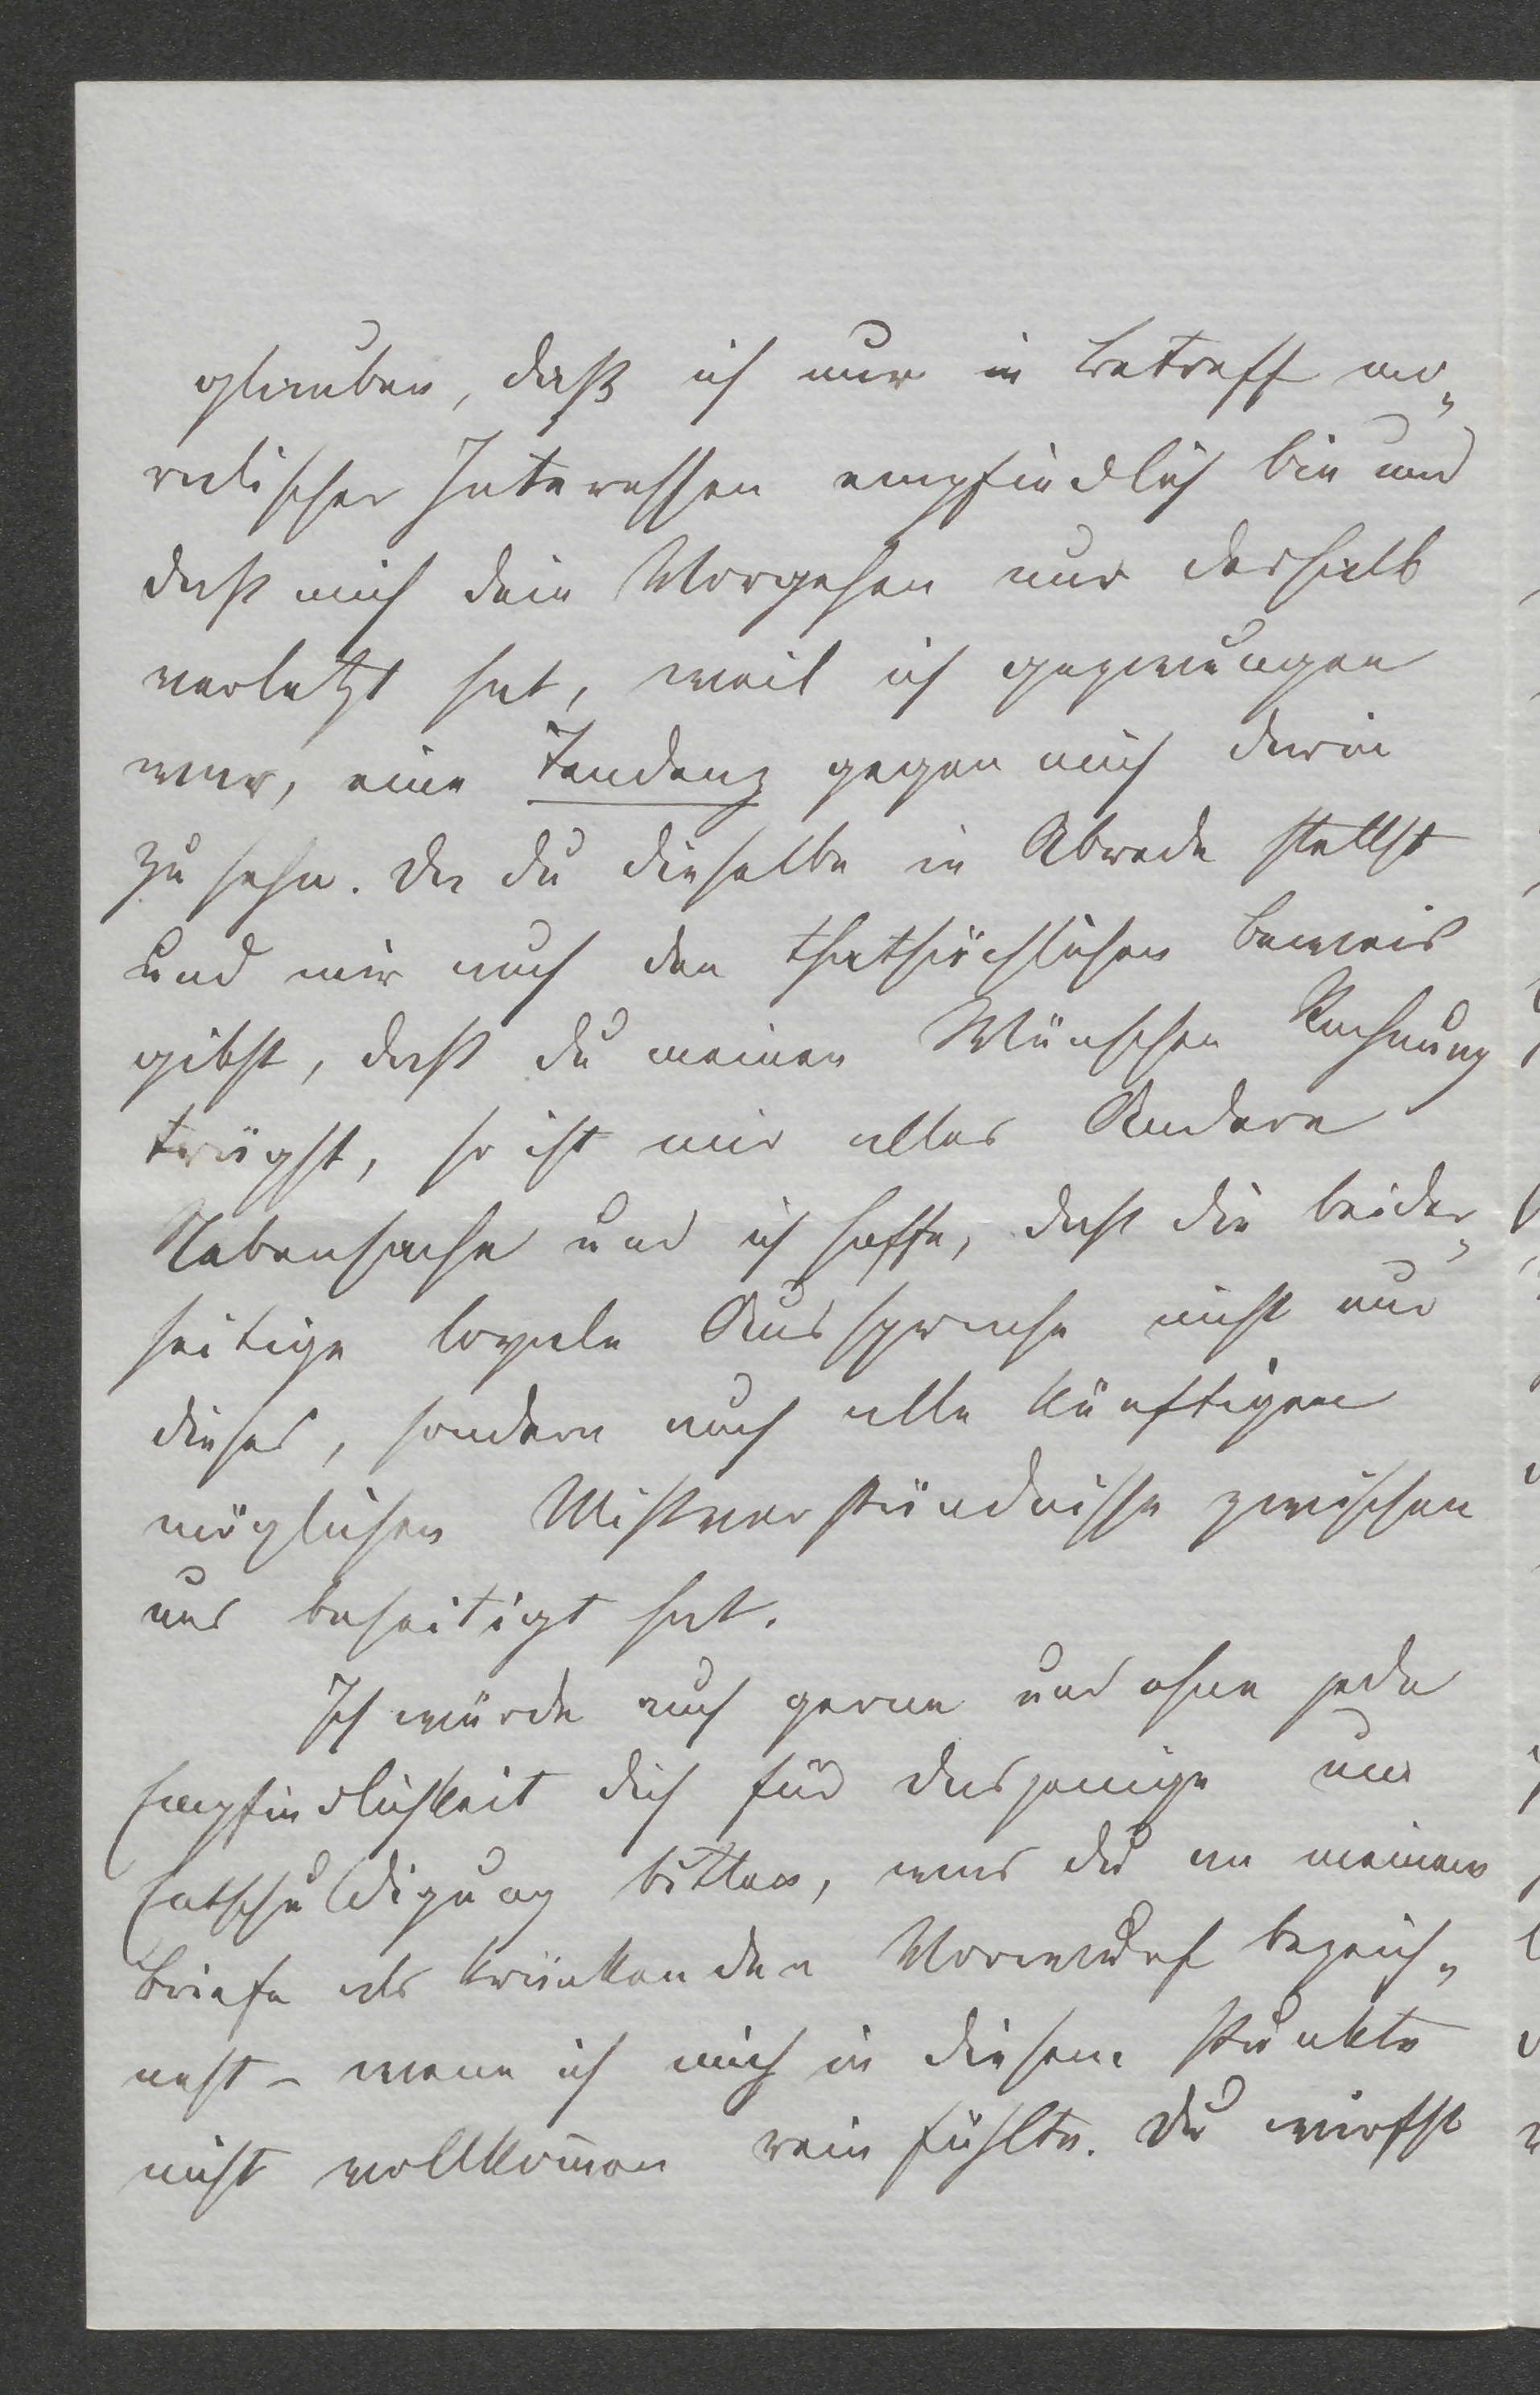 glauben, daß ich nur in Betreff mo-
ralischer Interessen empfindlich bin und
daß mich dein Vorgehen nur deshalb
verletzt hat, weil ich gezwungen
war, eine Tendenz gegen mich darin
zu sehn. Da du dieselbe in Abrede stellst
und mir auch den thatsächlichen Beweis
gibst, daß du meinen Wünschen Rechnung
trägst, so ist mir alles Andere
Nebensache und ich hoffe, daß die beider-
seitige loyale Aussprache nicht nur
dieses, sondern auch alle künftigen
möglichen Mißverständnisse zwischen
uns beseitigt hat.
Ich würde auch gerne und ohne jede
Empfindlichkeit dich für dasjenige um
Entschuldigung bitten, was du an meinem
Briefe als kränkenden Vorwurf bezeich-
nest – wenn ich mich in diesem Punkte
nicht vollkom̄en rein fühlte. Du wirfst